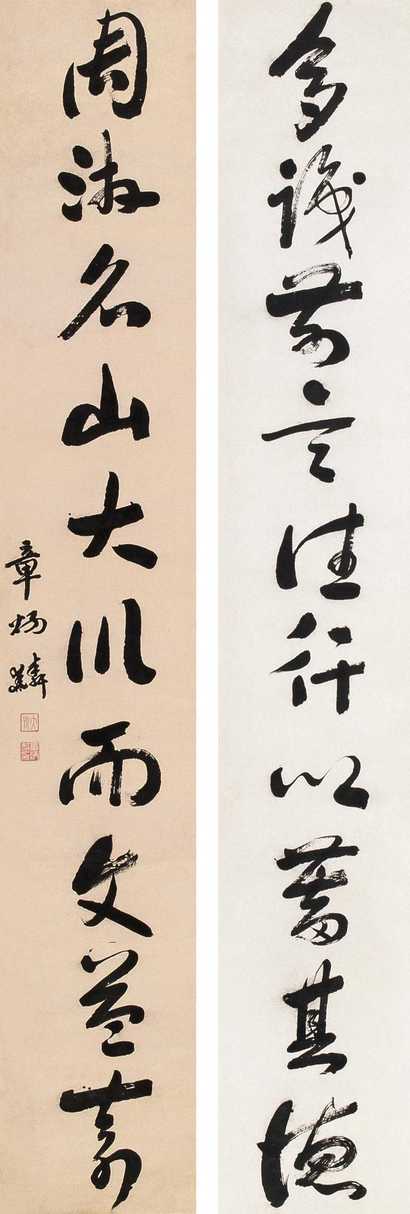 多識前言往行以蓄其德
周游名山大川而文益奇
章炳麟